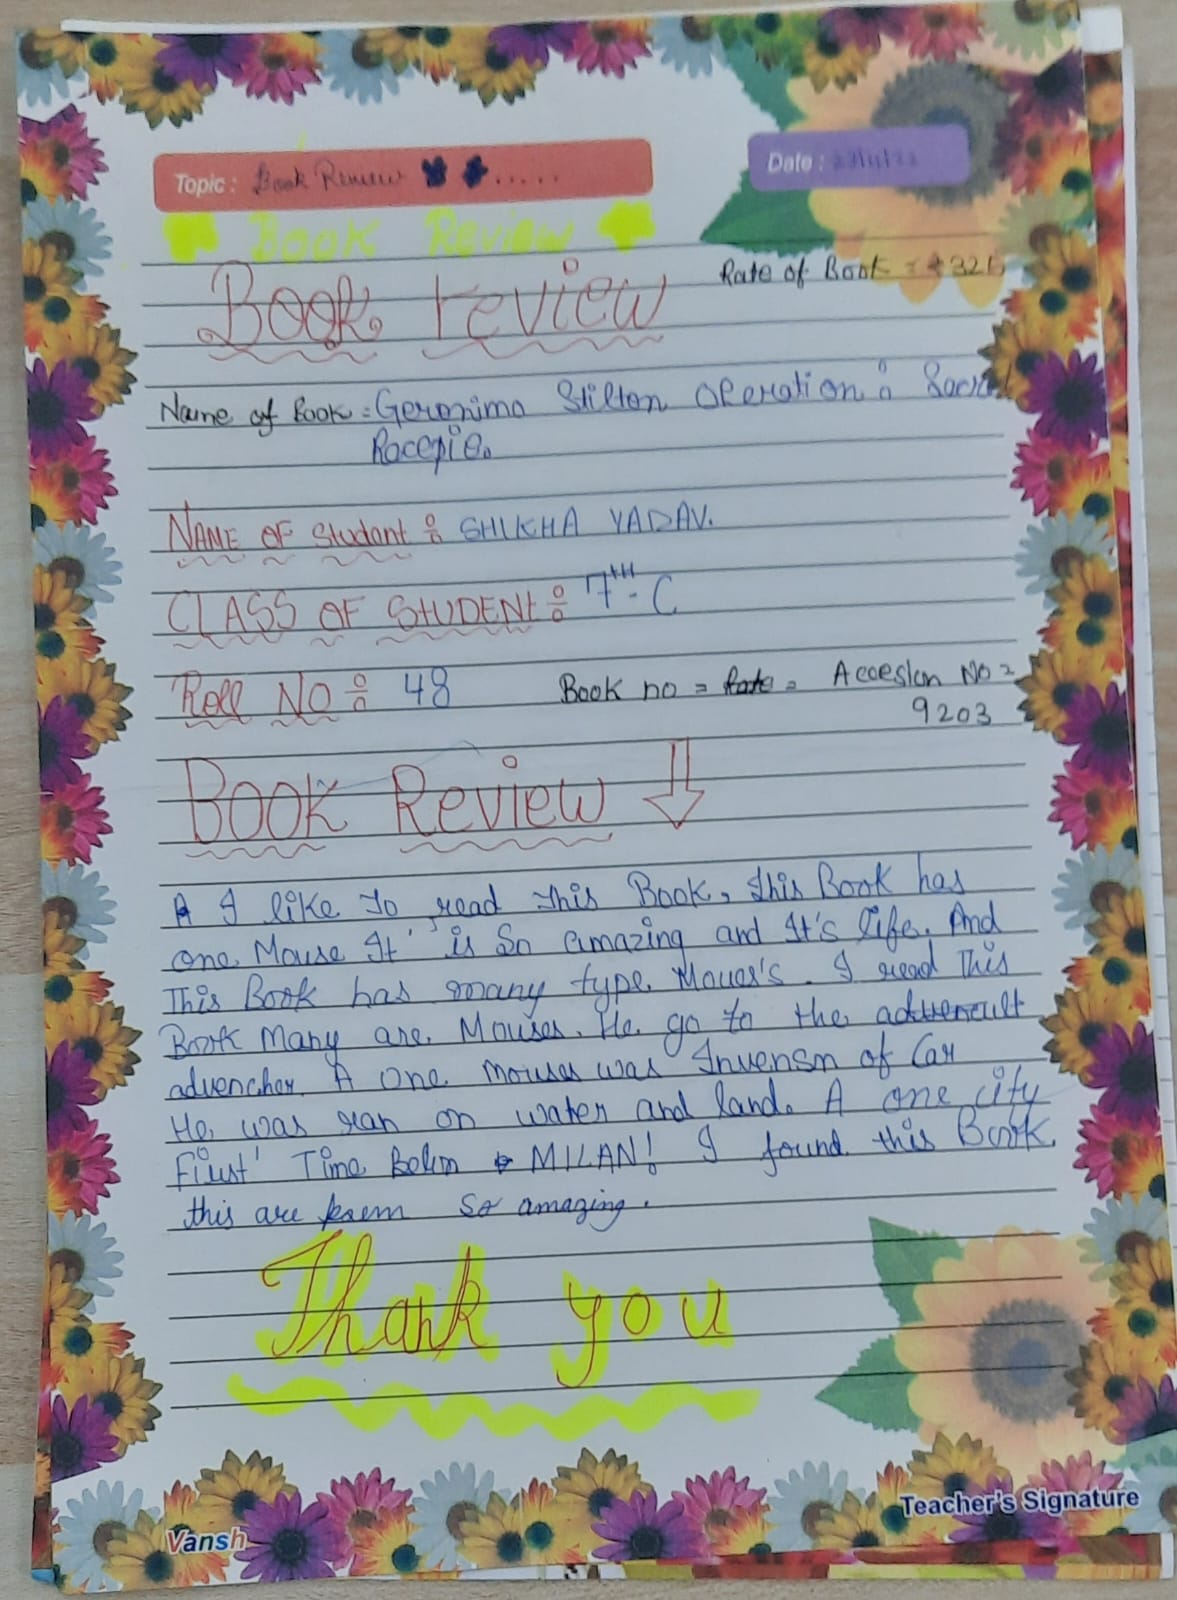 Topic : Book Review .....
Date : 23/11/22
Book Review
Book review
Rate of Book = ₹ 325
Name of Book = Geronimo Stilton Operation :
Racepie.
NAME OF Student : SHIKHA YADAV.
CLASS OF STUDENT : 7TH - C
Roll NO : 48
Book no = Rate = Accesion No =
9203
Book Review
A I like To read this Book, this Book has
one Mouse It' is So amazing and It's life. And
This Book has many type Moues's. I read This
Book Many are Mouses. He go to the
advencher A one mouses was of Car
He was ran on water and land. A one city
First Time MILAN! I found this Book
this are so amazing.
Thank you
Teacher's Signature
Vansh